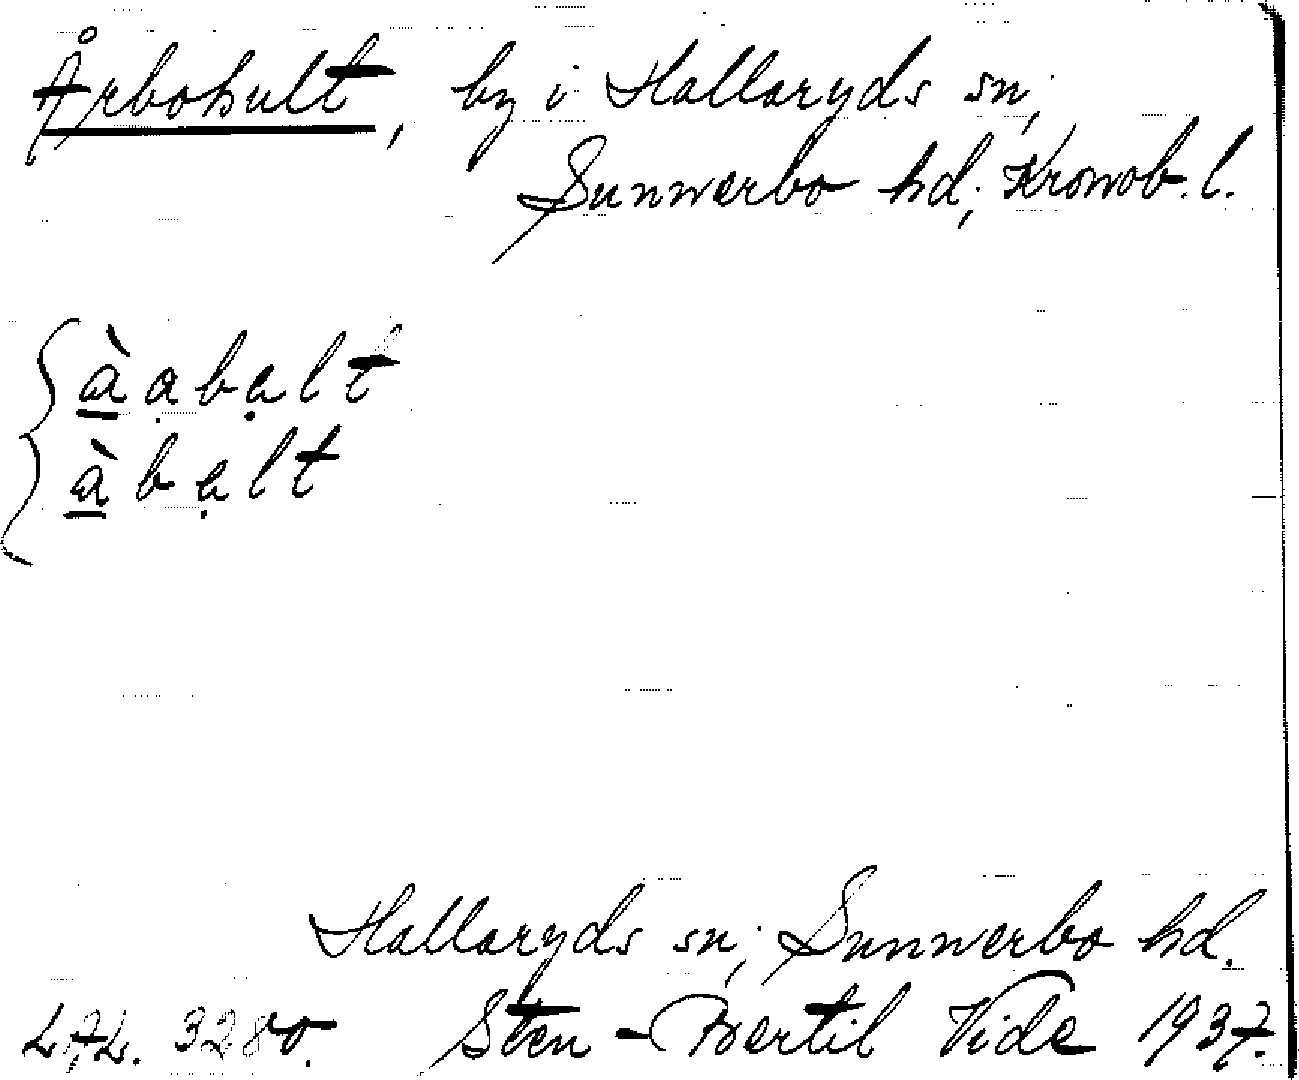 Årbohult, by i Hallaryds sn;
Sunnerbo hd; Kronob. l.
à a b a l t
à b a l t
Hallaryds sn; Sunnerbo hd.
L.A.L. 3280. Sten-Bertil Vide 1937.